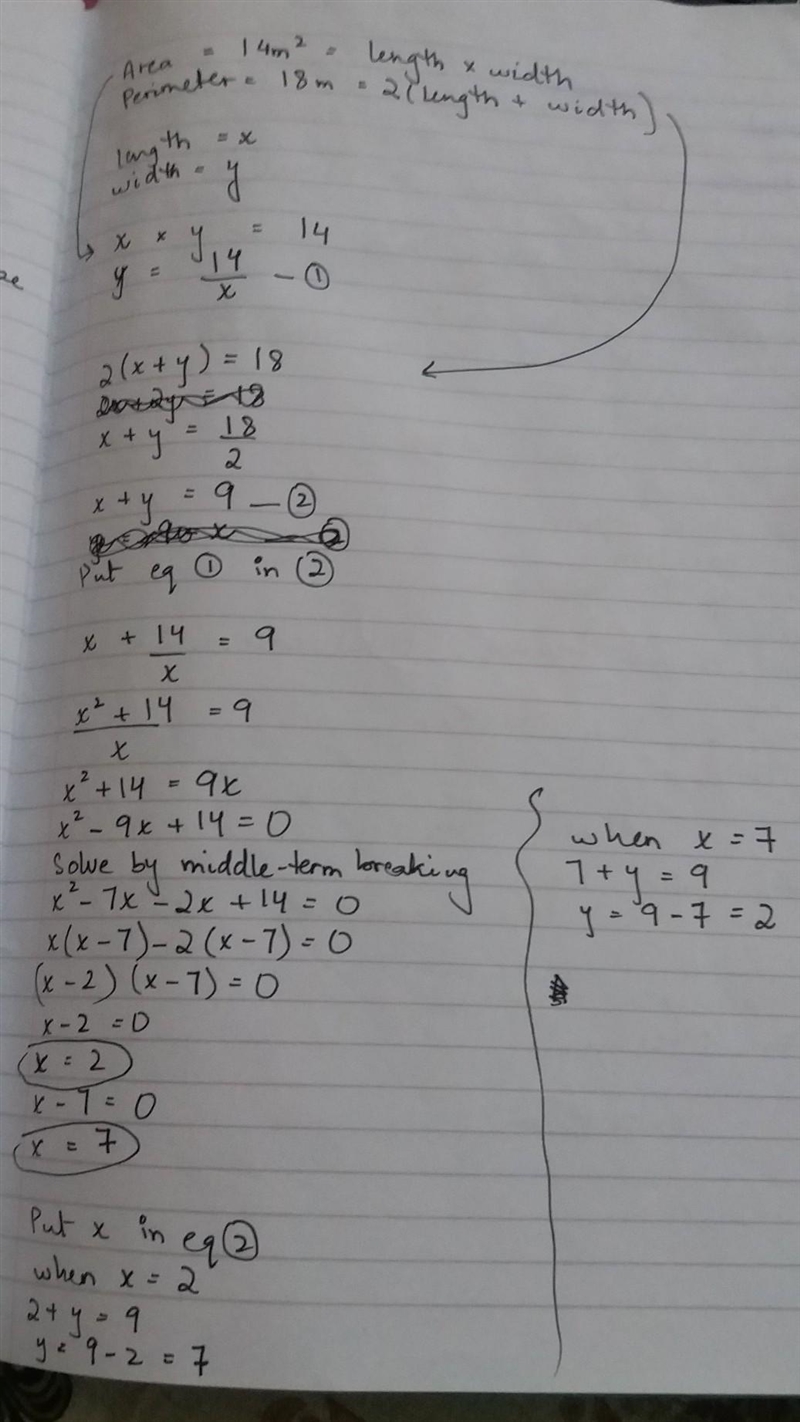 Area = 14m² = length × width
Perimeter = 18m = 2(length + width)
length = x
width = y
x × y = 14
y = 14/x — ①
2(x + y) = 18
2x + 2y = 18
x + y = 18/2
x + y = 9 — ②
Put eq ① in ②
x + 14/x = 9
x² + 14/x = 9
x² + 14 = 9x
x² - 9x + 14 = 0
Solve by middle-term breaking
x² - 7x - 2x + 14 = 0
x(x - 7) - 2(x - 7) = 0
(x - 2) (x - 7) = 0
x - 2 = 0
x = 2
x - 7 = 0
x = 7
Put x in eq ②
when x = 2
2 + y = 9
y = 9 - 2 = 7
when x = 7
7 + y = 9
y = 9 - 7 = 2